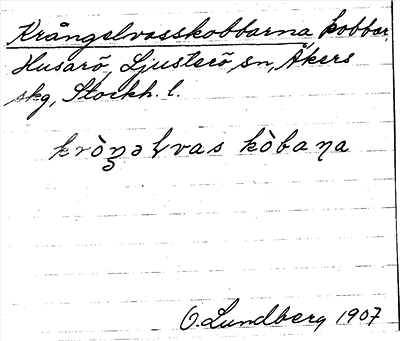 Krångelvasskobbarna kobbar,
Husarö, Ljusterö sn, Åkers
skg, Stockh. l.
kròŋəɬvas kòbaɳa
O. Lundberg 1907